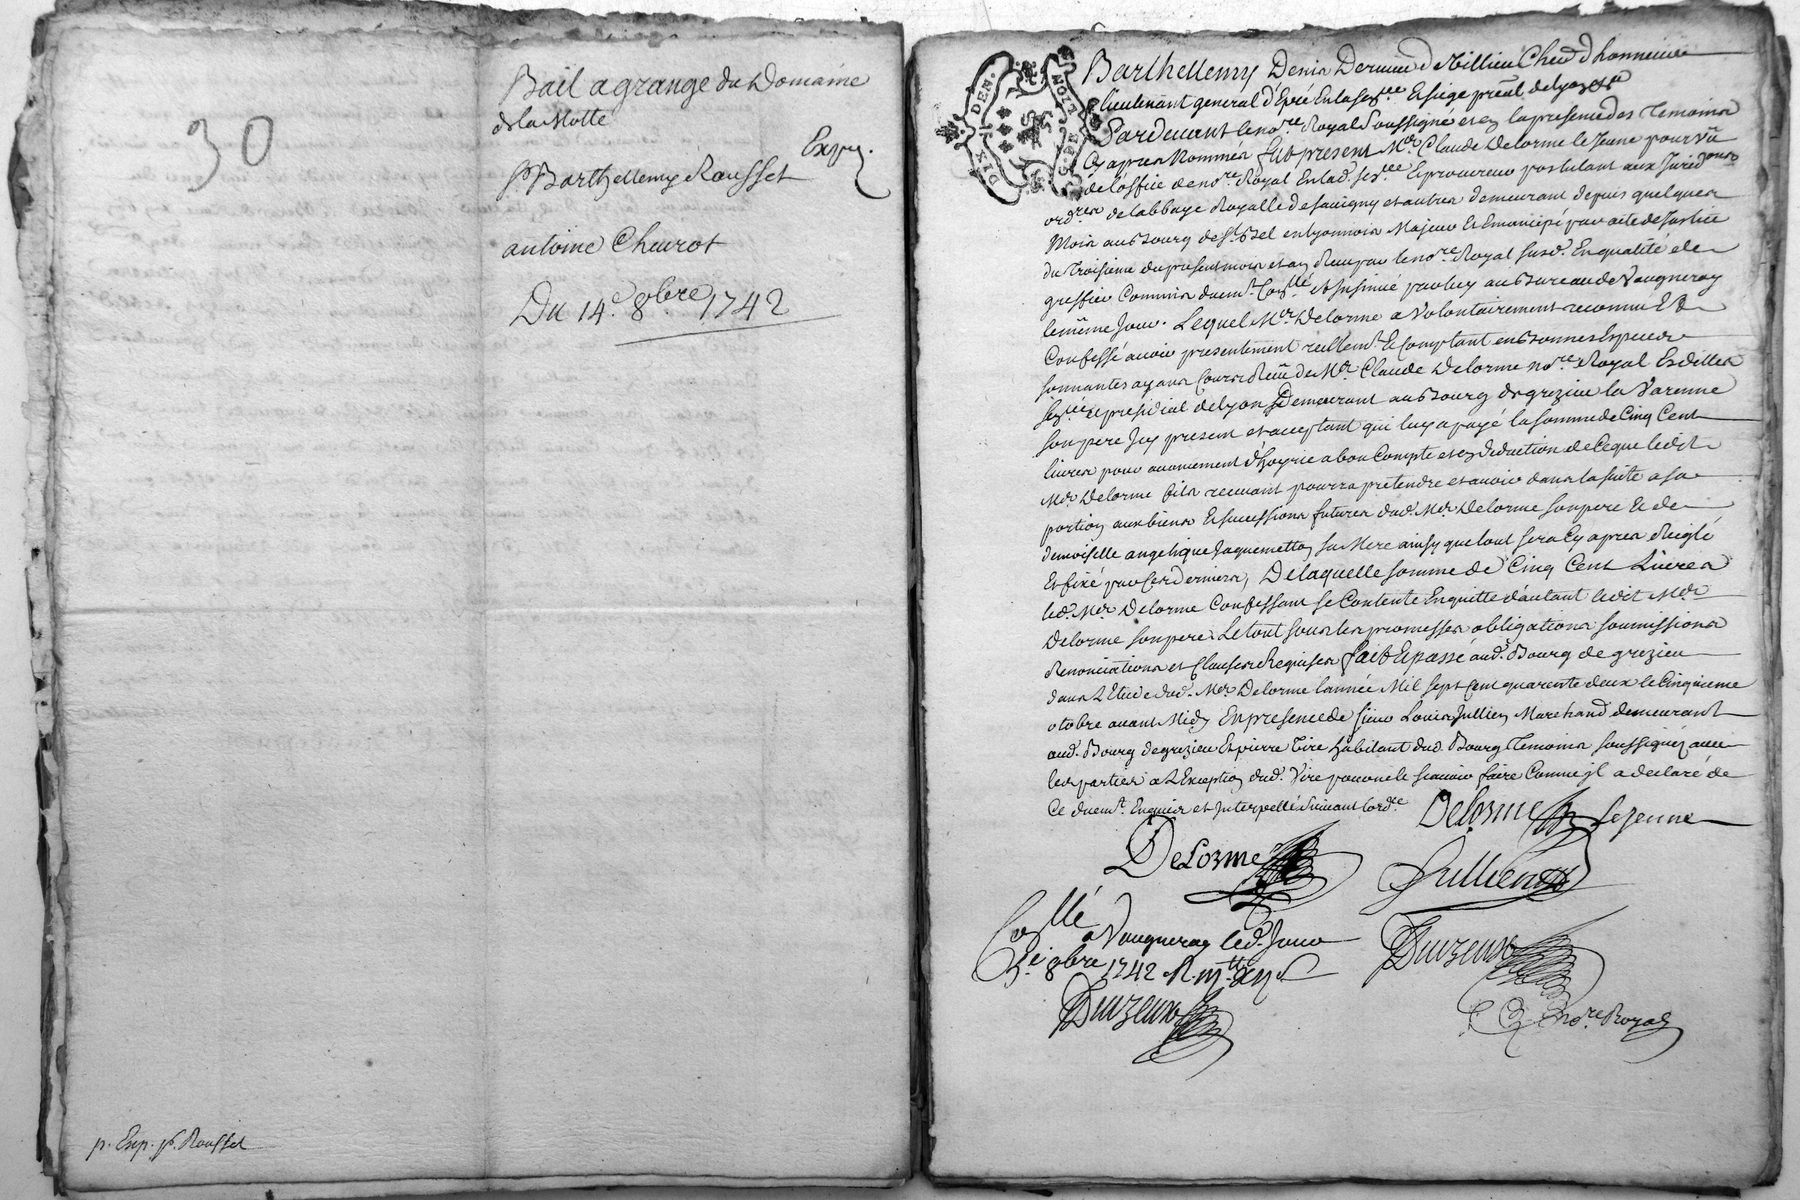 30
Bail a grange du Domaine
de la Motte
Expé.
Sr Barthellemy Rousset
antoine Cheurot
Du 14e. 8bre. 1742
p. Exp. Sr. Rousset
DIX DEN.
G. DE LYON
Barthellemy Denis Dervieu de Villieu Cher. d'honneur
lieutenant general d'Epée En la Senée. Et siege preal. de Lyon
Pardevant le nore. Royal Soussigné et en la presence des Temoins
Cy apres Nommés fut present Mr. Claude Delorme le Jeune pourvû
de l'office de nore. Royal En lad. Senée. Et procureur postulant aux Jurisdons
ordres de l'abbaye Royalle de Savigny et autres demeurant depuis quelques
Mois au Bourg de St. Bel en Lyonnois Majeur Et Emancipé par acte de Justice
du Troisieme du present mois et an Reçu par le nore. Royal susd. En qualité de
greffier Commis duemt. Conllé. et Insinué par luy au Bureau de Vaugneray
le même Jour. Lequel Mr. Delorme a Volontairement reconnu Et
Confessé avoir presentement reellemt. Et Comptant en Bonnes Especes
sonnantes ayans Cours Reçû de Mr. Claude Delorme nore. Royal Es dittes
Senée et presidial de Lyon Demeurant au Bourg de grezieu la Varenne
son pere Icy present et acceptant qui luy a payé la somme de Cinq Cent
livres pour avancement d'hoyrie a bon Compte et en deduction de Ce que ledit
Mr. Delorme fils recevant pourra pretendre et avoir dans la suite a sa
portion aux biens Et successions futures dud. Mr. Delorme son pere Et de
demoiselle angelique Jaquemetton sa Mere ainsy que tout sera Cy apres Reiglé
Et fixé par Ces derniers, De laquelle somme de Cinq Cent Livres
led. Mr. Delorme Confessant se Contente En quitte d'autant ledit Mr.
Delorme son pere. Le tout sous les promesses obligations soumissions
Renonciations et Clauses Requises fait Et passé aud. Bourg de grezieu
dans L'Etude dud. Mr. Delorme l'année Mil sept Cent quarente deux le Cinquieme
octobre avant Midy En presence de sieur Louis Jullien Marchand demeurant
aud. Bourg de grezieu Et pierre Vire habitant dud. Bourg Temoins soussignez avec
les parties a L'Exception dud. Vire pour ne le sçavoir faire Comme il a declaré de
Ce duemt. Enquis et Interpellé suivant l'ordce.
Delorme Le jeune
Delorme
Jullien
Conllé
a Vaugneray led. Jour
5e 8bre 1742
nore Royal